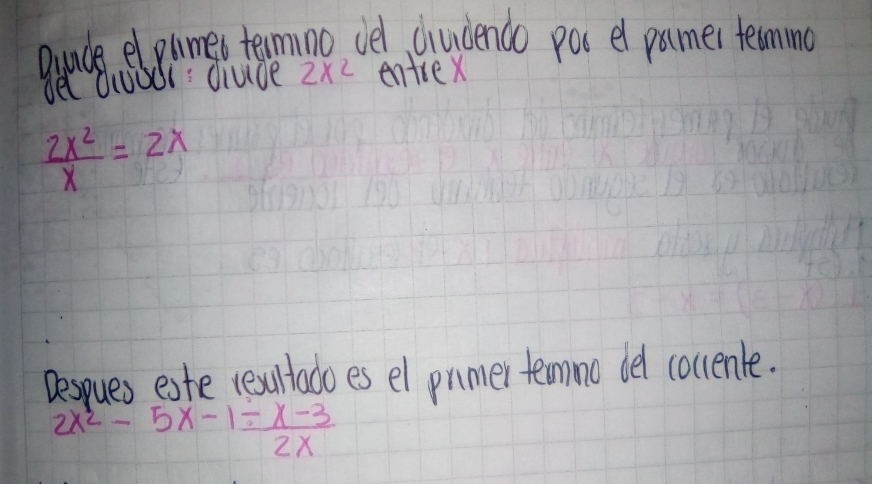 Divide el primer termino del dividendo por el primer termino
del divisor: divide 2x2 entre x
2x²/x = 2x
Despues este resultado es el primer termino del cociente.
2x² - 5x - 1 ÷ x - 3
2x